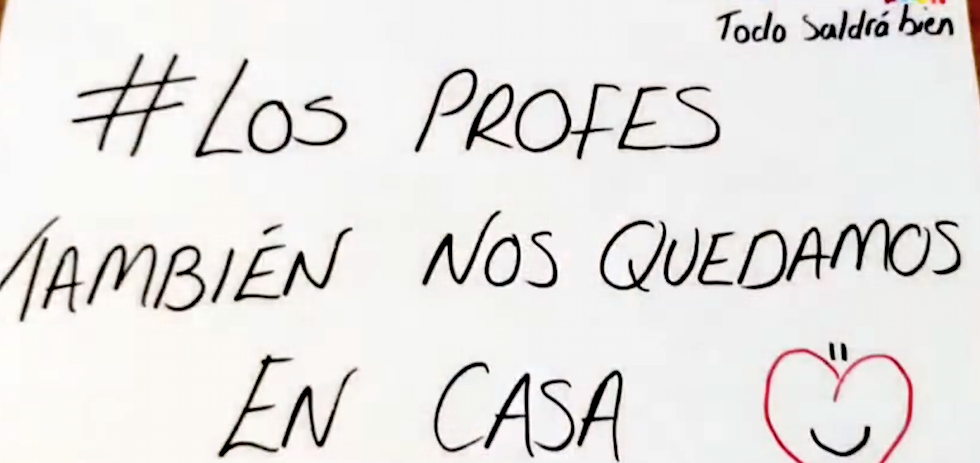 Todo Saldrá bien
#LOS PROFES
TAMBIÉN NOS QUEDAMOS
EN CASA